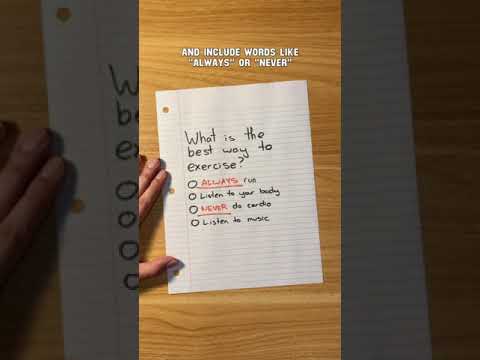 AND INCLUDE WORDS LIKE
"ALWAYS" OR "NEVER"
What is the
best way to
exercise?
ALWAYS run
Listen to your body
NEVER do cardio
Listen to music